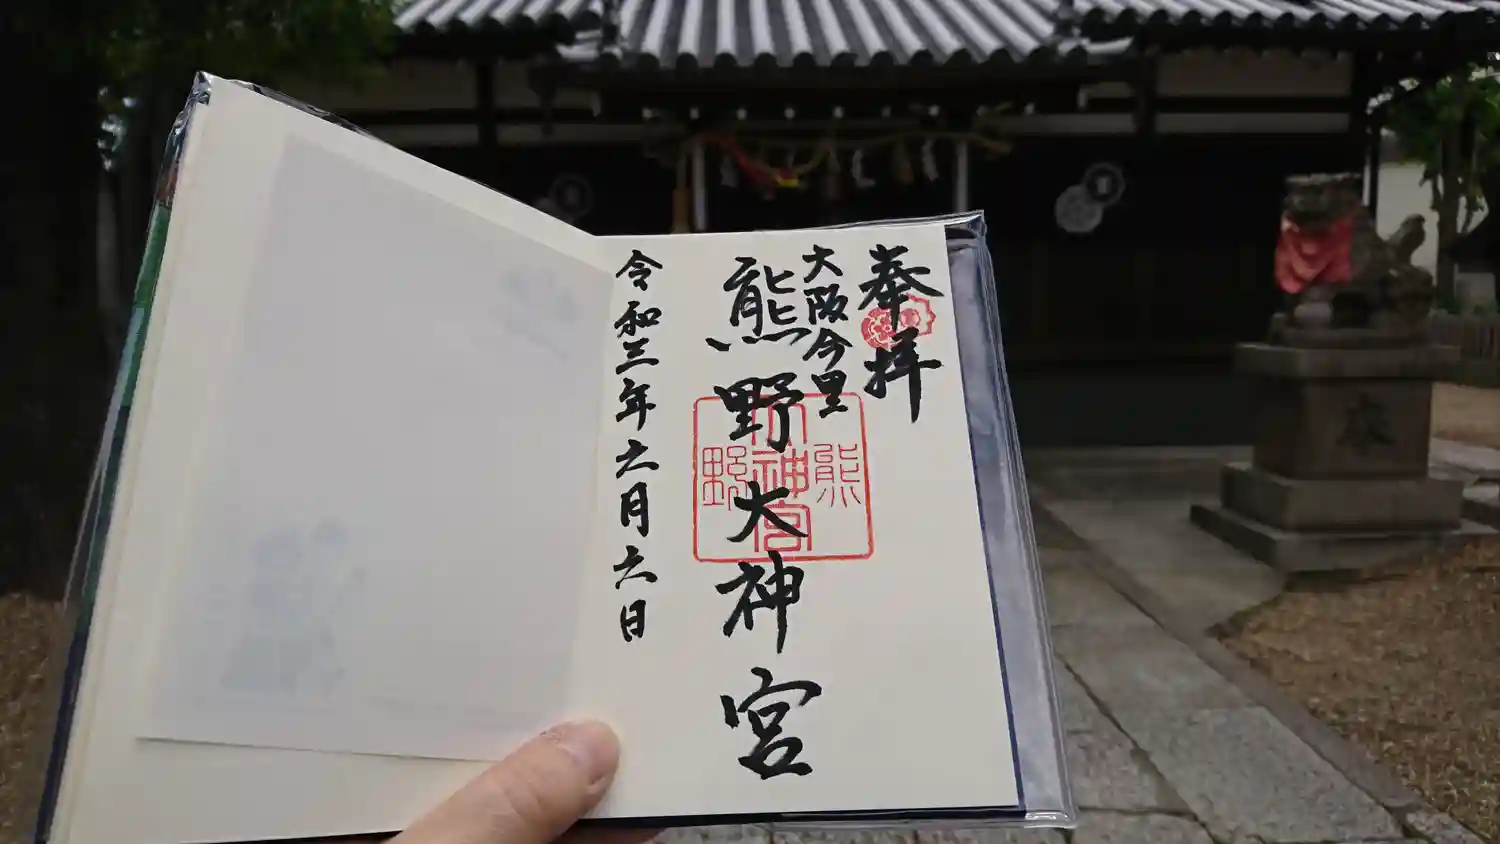 奉拝
大阪今里
熊野大神宮
令和三年六月六日
熊
大神宮
野
奉